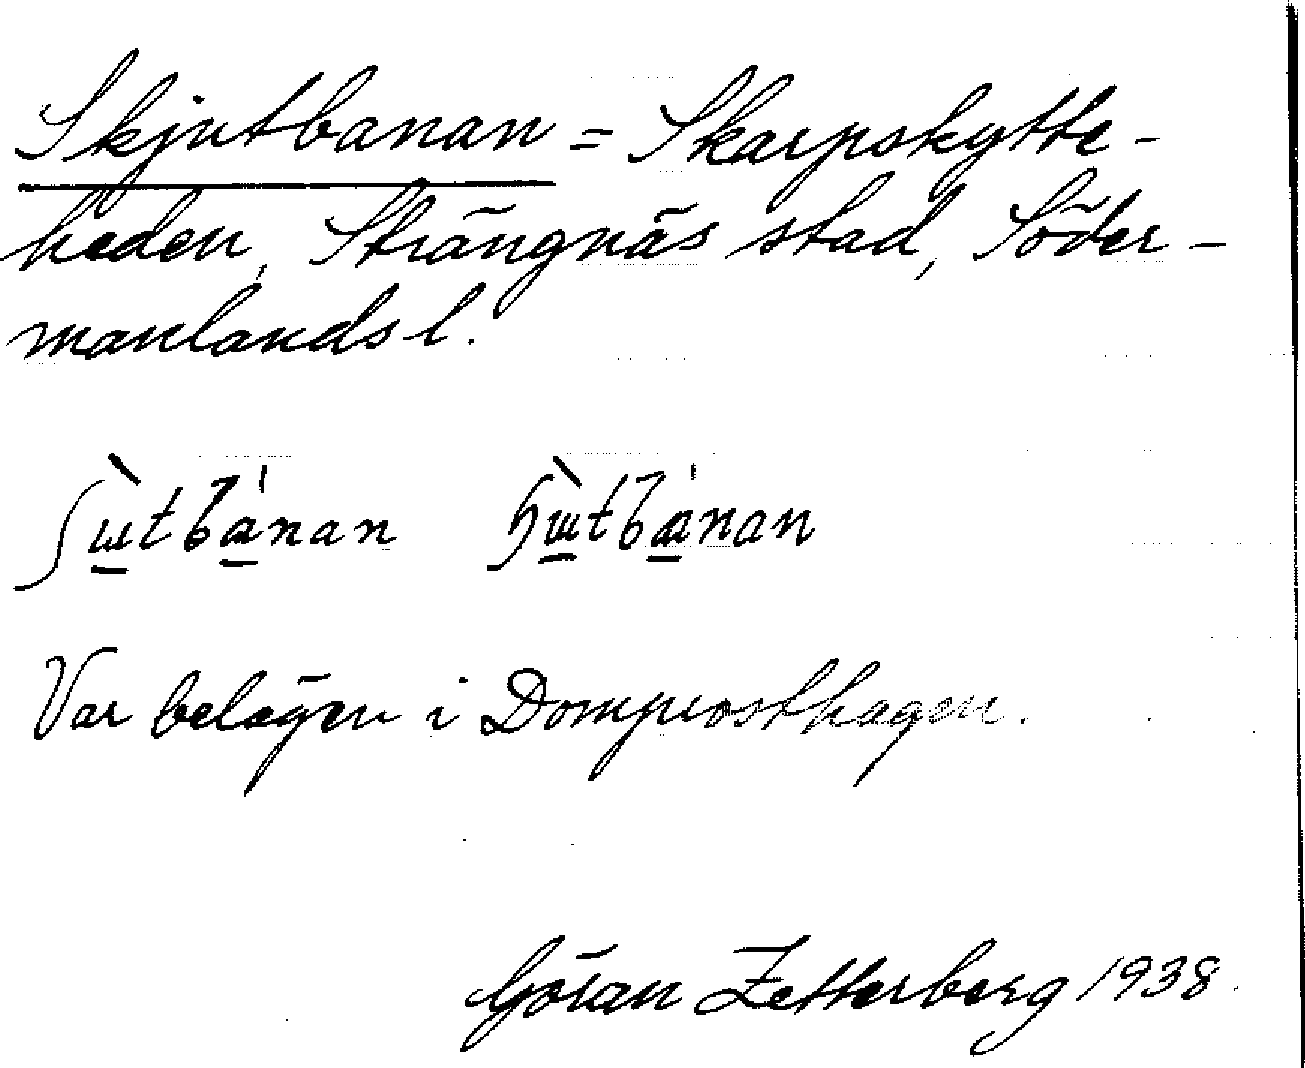 Skjutbanan = Skarpskytte-
heden, Strängnäs stad, Söder-
manlands l.
ʃɯ̀tbánan ɧɯ̀tbánan
Var belägen i Domprosthagen.
Göran Zetterberg 1938.